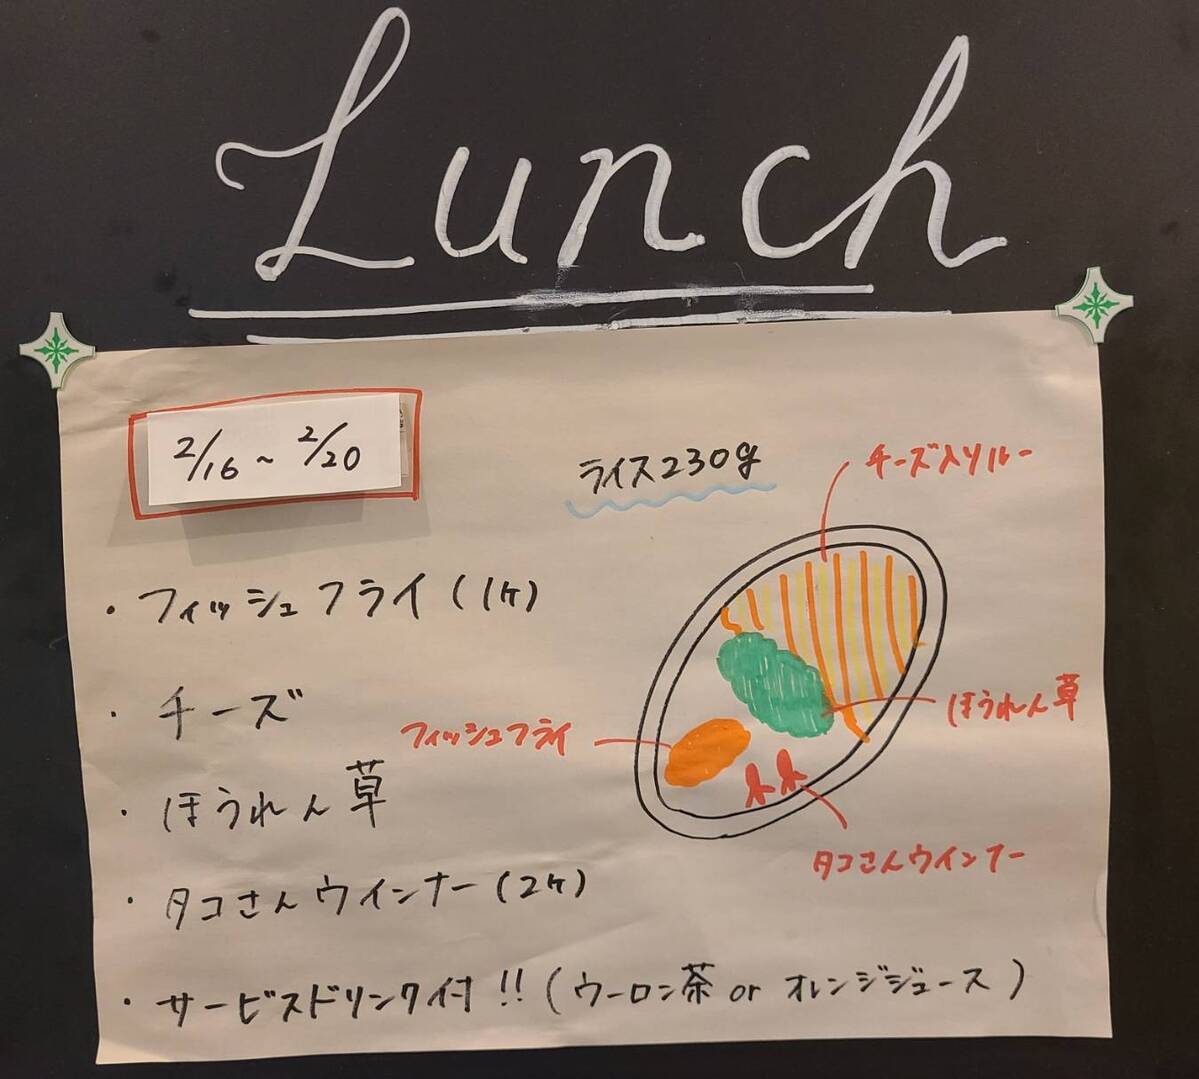 Lunch
2/16~2/20
ライス230g
チーズ入りルー
・フィッシュフライ(1ヶ)
・チーズ
フィッシュフライ
ほうれん草
・ほうれん草
タコさんウインナー
・タコさんウインナー(2ヶ)
・サービスドリンク付!!(ウーロン茶 or オレンジジュース)